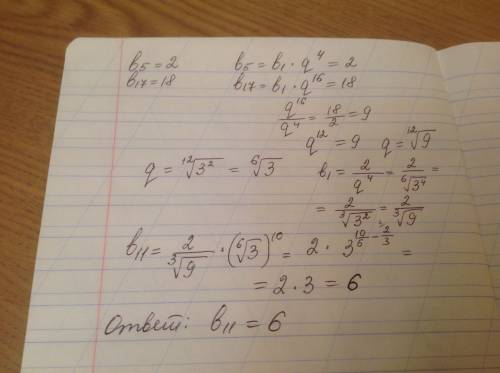 b₅ = 2    b₅ = b₁ · q⁴ = 2
b₁₇ = 18    b₁₇ = b₁ · q¹⁶ = 18
q¹⁶/q⁴ = 18/2 = 9
q¹² = 9    q = ¹²√9
q = ¹²√3² = ⁶√3    b₁ = 2/q⁴ = 2/⁶√3⁴ =
= 2/³√3² = 2/³√9
b₁₁ = 2/³√9 · (⁶√3)¹⁰ = 2 · 3^(10/6 − 2/3) =
= 2 · 3 = 6
Ответ: b₁₁ = 6